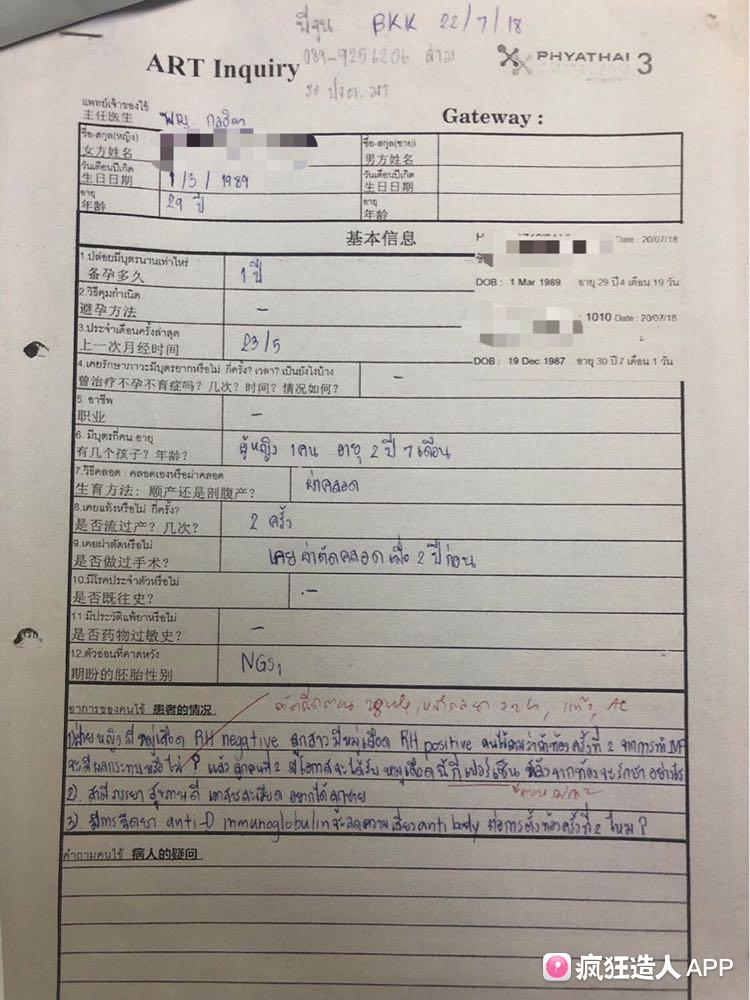 พี่จูน BKK 22/7/18
089-9256206 ล่าม
ART Inquiry
PHYATHAI 3
แพทย์เจ้าของไข้
主任医生 พญ. กุลธิดา
Gateway :
ชื่อ-สกุล(หญิง) ชื่อ-สกุล(ชาย)
女方姓名 男方姓名
วันเดือนปีเกิด วันเดือนปีเกิด
生日日期 1/3/1989 生日日期
อายุ อายุ
年龄 29 ปี 年龄
基本信息
Date : 20/07/18
DOB : 1 Mar 1989 อายุ 29 ปี 4 เดือน 19 วัน
1010 Date : 20/07/18
DOB : 19 Dec 1987 อายุ 30 ปี 7 เดือน 1 วัน
1.ปล่อยมีบุตรนานเท่าไหร่
备孕多久 1 ปี
2.วิธีคุมกำเนิด
避孕方法 -
3.ประจำเดือนครั้งล่าสุด
上一次月经时间 23/5
4.เคยรักษาภาวะมีบุตรยากหรือไม่ กี่ครั้ง? เวลา? เป็นยังไงบ้าง
曾治疗不孕不育症吗？几次？时间？情况如何？ -
5. อาชีพ
职业 -
6. มีบุตรกี่คน อายุ
有几个孩子？年龄？ ผู้หญิง 1 คน อายุ 2 ปี 7 เดือน
7.วิธีคลอด : คลอดเองหรือผ่าคลอด
生育方法：顺产还是剖腹产？ ผ่าคลอด
8.เคยแท้งหรือไม่ กี่ครั้ง?
是否流过产？几次？ 2 ครั้ง
9.เคยผ่าตัดหรือไม่
是否做过手术？ เคย ผ่าตัดคลอดเมื่อ 2 ปีก่อน
10.มีโรคประจำตัวหรือไม่
是否既往史？ -
11.มีประวัติแพ้ยาหรือไม่
是否药物过敏史？ -
12.ตัวอ่อนที่คาดหวัง
期盼的胚胎性别 NGS1
อาการของคนไข้ 患者的情况
1) ฝ่ายหญิงมี หมู่เลือด RH negative ลูกสาวมีหมู่เลือด RH positive คนไข้ถามว่าถ้าท้องครั้งที่ 2 จากการทำ IVF
จะมีผลกระทบหรือไม่ ? แล้ว ลูกคนที่ 2 มีโอกาสจะได้รับ หมู่เลือดนี้กี่เปอร์เซ็น หลังจากท้องจะรักษาอย่างไร
2) สามีภรรยา สุขภาพดี เอกสารละเอียด อยากได้ลูกชาย
3) มีการฉีดยา anti-D immunoglobulin จะลดความเสี่ยง anti body ต่อการตั้งท้องครั้งที่ 2 ไหม ?
คำถามคนไข้ 病人的疑问
疯狂造人 APP